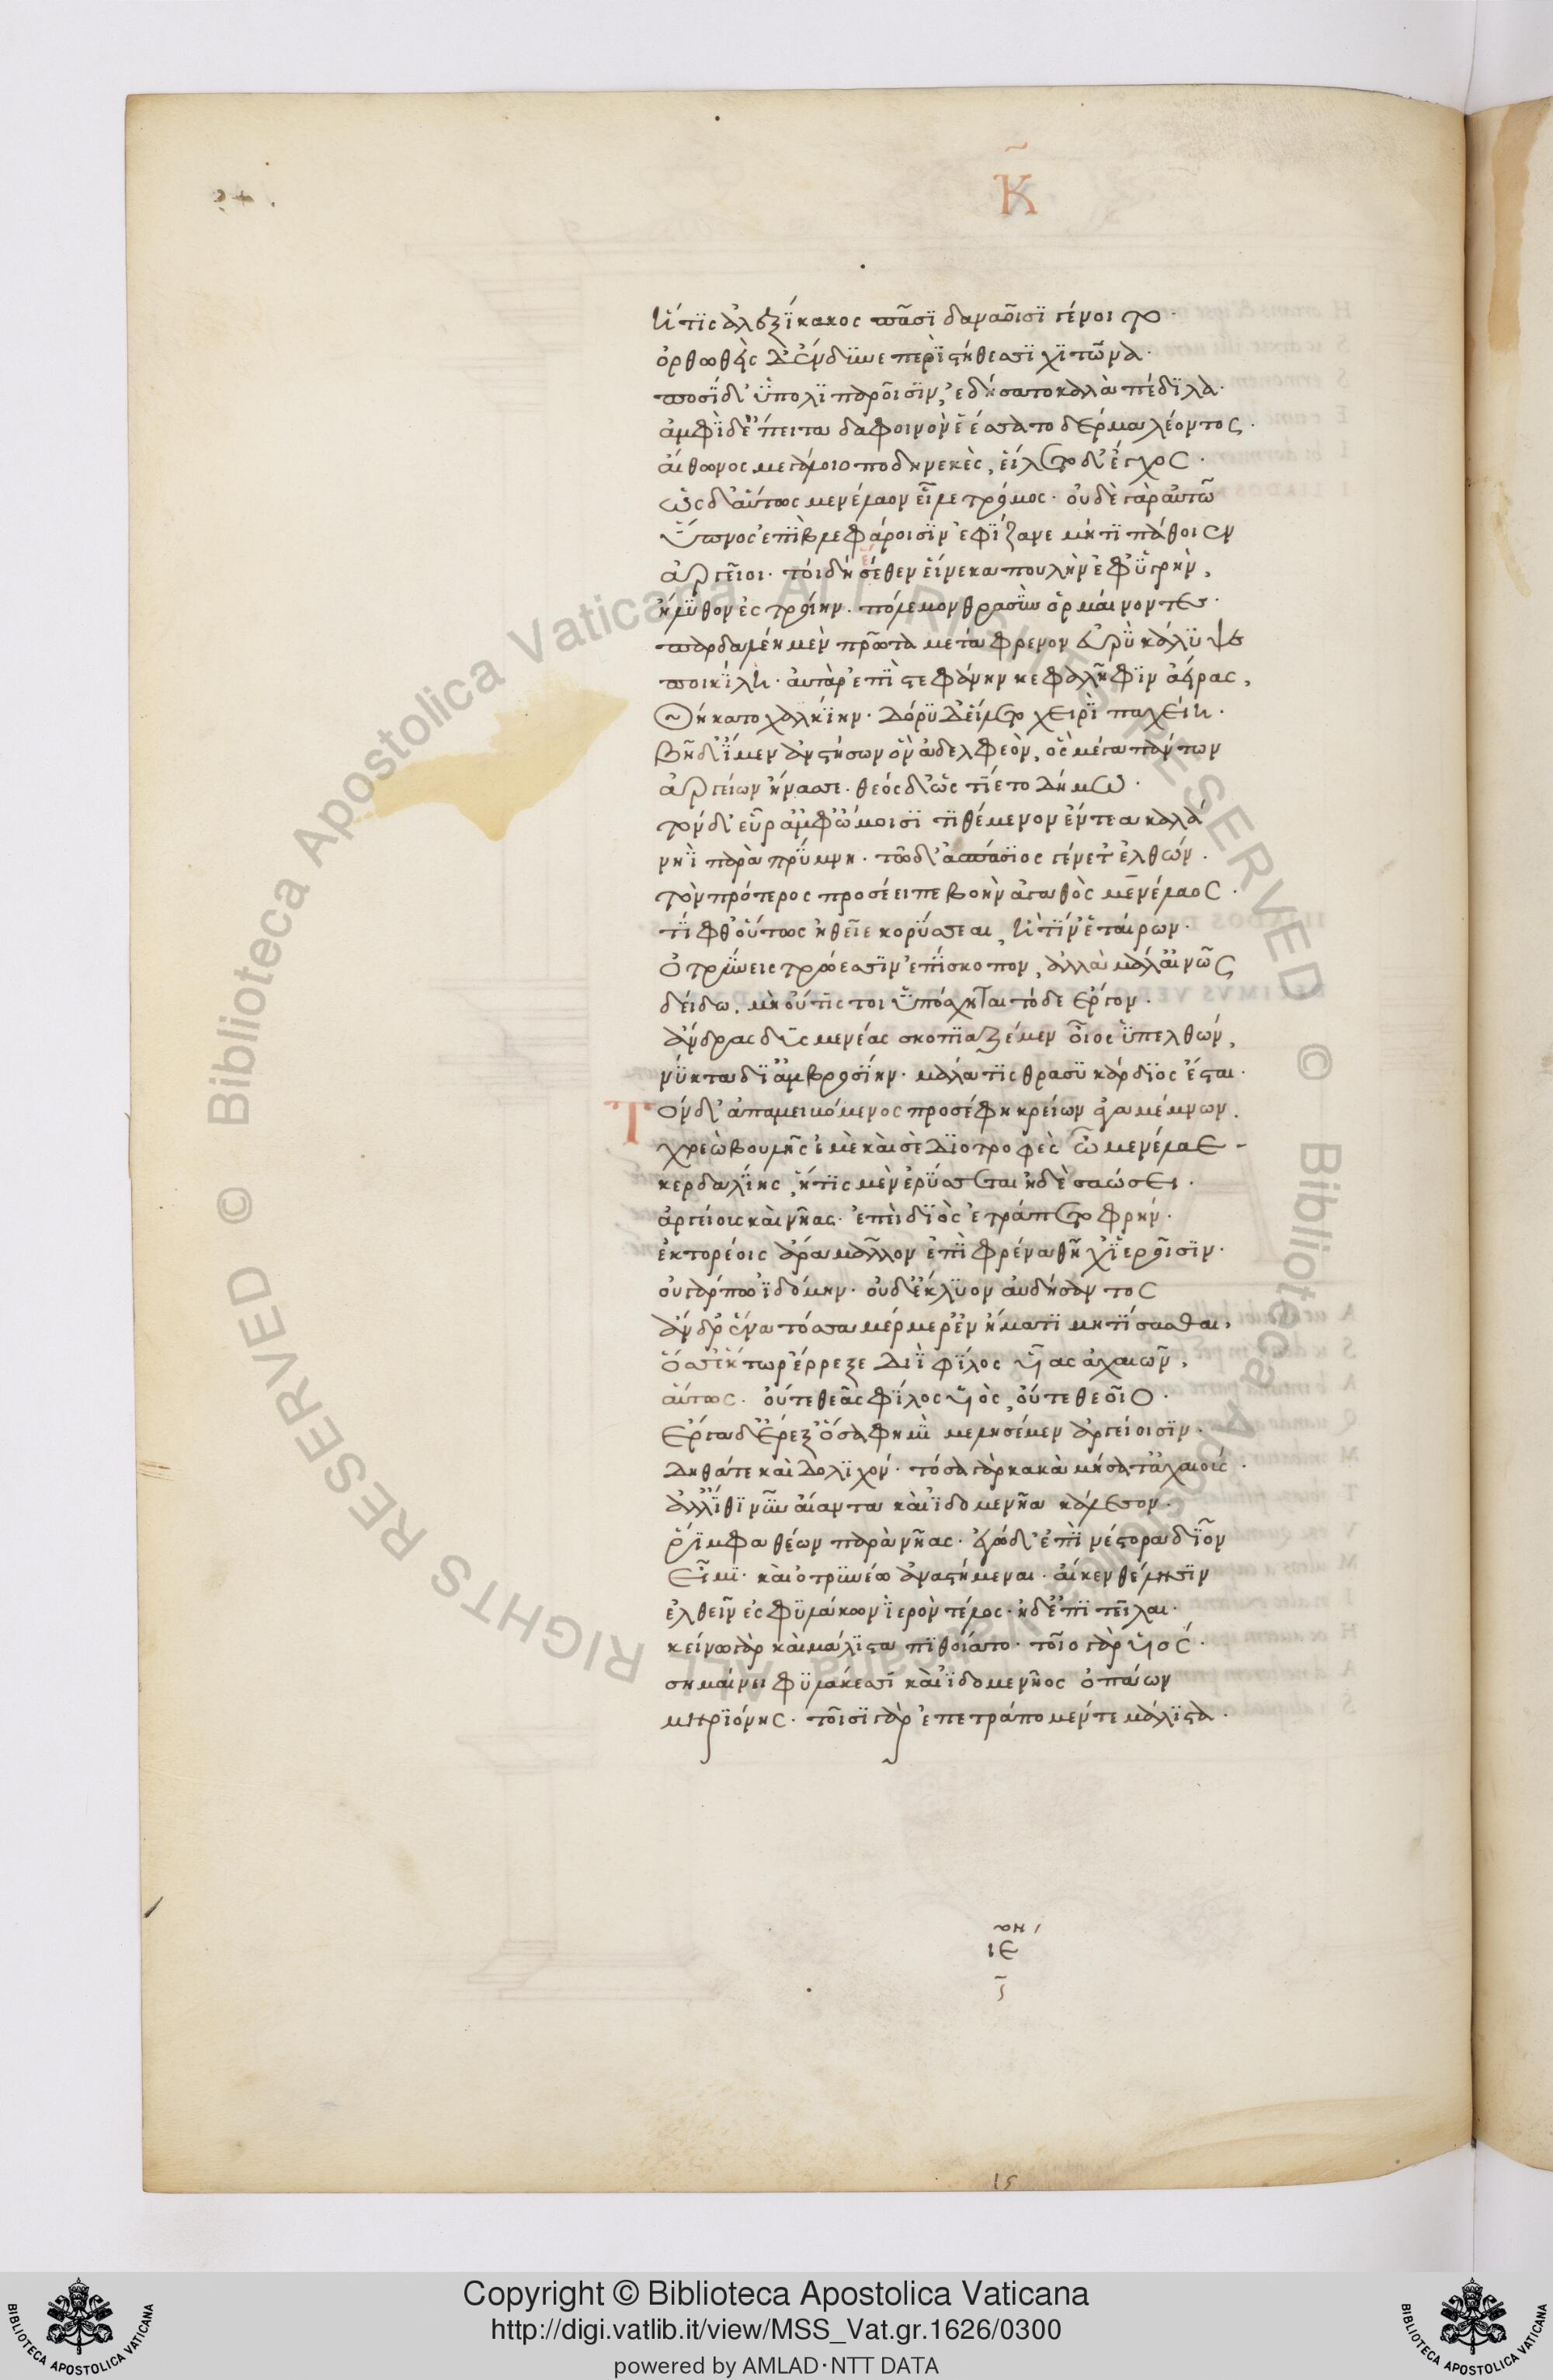 Κ
εἴ τις ἀλεξίκακος πᾶσι δαναοῖσι γένοιτο·
ὀρθωθεὶς δ' ἔνδυνε περὶ στήθεσσι χιτῶνα·
ποσὶ δ' ὑπὸ λιπαροῖσιν, ἐδήσατο καλὰ πέδιλα·
ἀμφὶ δ' ἔπειτα δαφοινὸν ἑέσσατο δέρμα λέοντος·
αἴθωνος μεγάλοιο ποδηνεκὲς, εἵλετο δ' ἔγχος·
ὣς δ' αὔτως μενέλαον εἶλε τρόμος· οὐδὲ γὰρ αὐτῶ
ὕπνος ἐπὶ βλεφάροισιν ἐφίζανε μή τι πάθοιεν
ἀργεῖοι· τοὶ δὴ σέθεν εἵνεκα πουλὴν ἐφ' ὑγρὴν,
ἤλυθον ἐς τροίην· πόλεμον θρασὺν ὁρμαίνοντες·
παρδαλέη μὲν πρῶτα μετάφρενον εὐρὺ κάλυψε
ποικίλη· αὐτὰρ ἐπὶ στεφάνην κεφαλῆφιν ἀείρας,
θήκατο χαλκίην· δόρυ δ' εἵλετο χειρὶ παχείη·
βῆ δ' ἴμεν ἀνστήσων ὃν ἀδελφεὸν, ὃς μέγα πάντων
ἀργείων ἤνασσε· θεὸς δ' ὣς τίετο δήμω·
τὸν δ' εὗρ' ἀμφ' ὤμοισι τιθέμενον ἔντεα καλά
νηῒ παρὰ πρύμνη· τῶ δ' ἀσπάσιος γένετ' ἐλθών·
τὸν πρότερος προσέειπε βοὴν ἀγαθὸς μενέλαος·
τίφθ' οὕτως ἠθεῖε κορύσσεαι, εἴ τιν' ἑταίρων·
ὀτρύνεις τρώεσσιν ἐπίσκοπον, ἀλλὰ μάλ' αἰνῶς
δείδω, μὴ οὔτις τοι ὑπόσχηται τόδε ἔργον·
ἄνδρας δυσμενέας σκοπιαζέμεν οἷος ὑπελθών,
νύκτα δι' ἀμβροσίην· μάλα τις θρασυκάρδιος ἔσται·
Τὸν δ' ἀπαμειβόμενος προσέφη κρείων ἀγαμέμνων·
χρεὼ βουλῆς ἐμὲ καὶ σὲ διοτροφὲς ὦ μενέλαε
κερδαλίης, ἥτις μὲν ἐρύσσεται ἠδὲ σαώσει·
ἀργείους καὶ νῆας· ἐπεὶ διὸς ἐτράπετο φρήν·
ἑκτορέοις ἄρα μᾶλλον ἐπὶ φρένα θῆχ' ἱεροῖσιν·
οὐ γάρ πω ἰδόμην· οὐδ' ἔκλυον αὐδήσαντος
ἄνδρ' ἕνα τόσσα μέρμερ' ἐν ἤματι μητίσασθαι,
ὅσσ' ἕκτωρ ἔρρεξε διῒ φίλος υἷας ἀχαιῶν,
αὔτως· οὔτε θεᾶς φίλος υἱὸς, οὔτε θεοῖο·
ἔργα δ' ἔρεξ' ὅσα φημὶ μελησέμεν ἀργείοισιν·
δηθά τε καὶ δολιχόν· τόσα γὰρ κακὰ μήσατ' ἀχαιούς·
ἀλλ' ἴθι νῦν αἴαντα καὶ ἰδομενῆα κάλεσον·
ῥίμφα θέων παρὰ νῆας· ἐγὼ δ' ἐπὶ νέστορα δῖον
εἶμι· καὶ ὀτρυνέω ἀναστήμεναι· αἴ κεν θέλησιν
ἐλθεῖν ἐς φυλάκων ἱερὸν τέλος· ἠδ' ἐπιτεῖλαι·
κείνω γὰρ καὶ μάλιστα πιθοίατο· τοῖο γὰρ υἱός·
σημαίνει φυλάκεσσι καὶ ἰδομενῆος ὀπάων
μηριόνης· τοῖσι γὰρ ἐπετράπομέν τε μάλιστα·
ιε
15
Copyright © Biblioteca Apostolica Vaticana
http://digi.vatlib.it/view/MSS_Vat.gr.1626/0300
powered by AMLAD·NTT DATA
BIBLIOTECA APOSTOLICA VATICANA
BIBLIOTECA APOSTOLICA VATICANA
© Biblioteca Apostolica Vaticana ALL RIGHTS RESERVED © Biblioteca Apostolica Vaticana ALL RIGHTS RESERVED